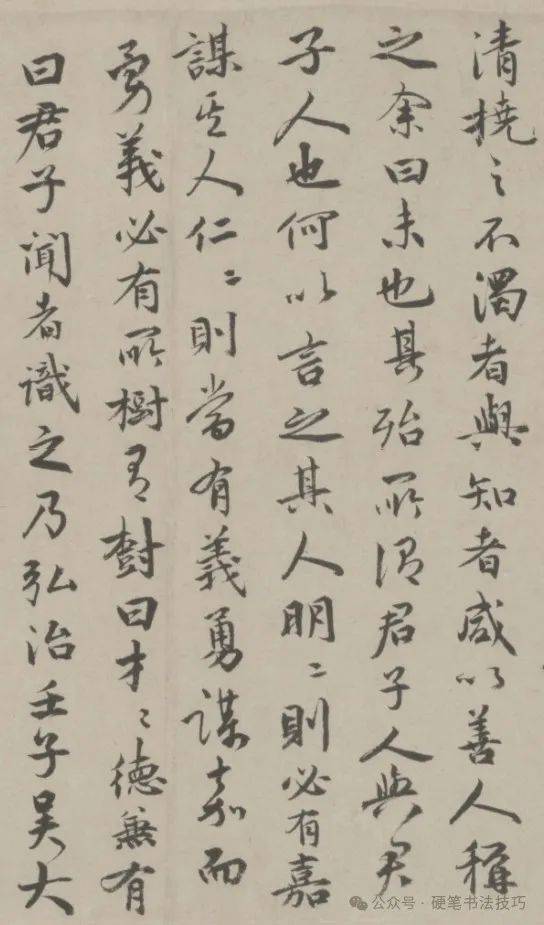 清撓之不濁者與知者咸以善人稱
之余曰未也其殆所謂君子人與君
子人也何以言之其人明〻則必有嘉
謀其人仁〻則當有義勇謀嘉而
勇義必有所樹有樹曰才〻德兼有
曰君子聞者識之乃弘治壬子吳大
公众号·硬笔书法技巧